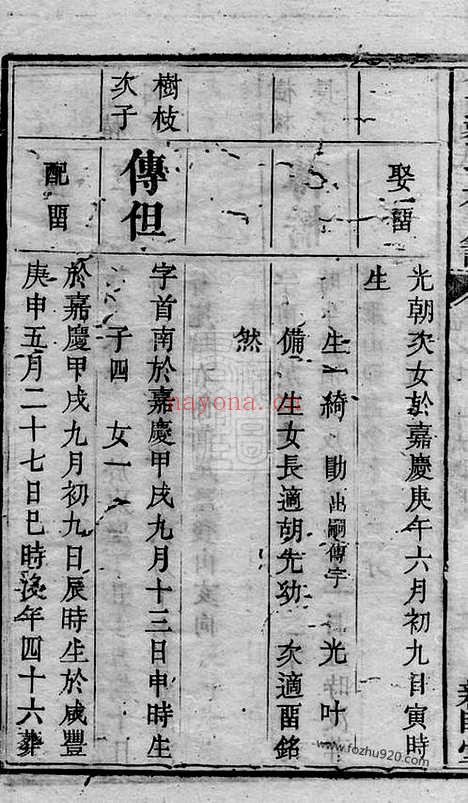 娶畱
光朝次女於嘉慶庚午六月初九日寅時
生
生一綺 勛出嗣傳宇 光 叶
備 生女長適胡先幼 次適畱銘
然
樹枝
次子
傳但
字首南於嘉慶甲戌九月十三日申時生
子四 女一
配畱
於嘉慶甲戌九月初九日辰時生於咸豐
庚申五月二十七日巳時没年四十六葬
nayona.cn
www.fozhu920.com